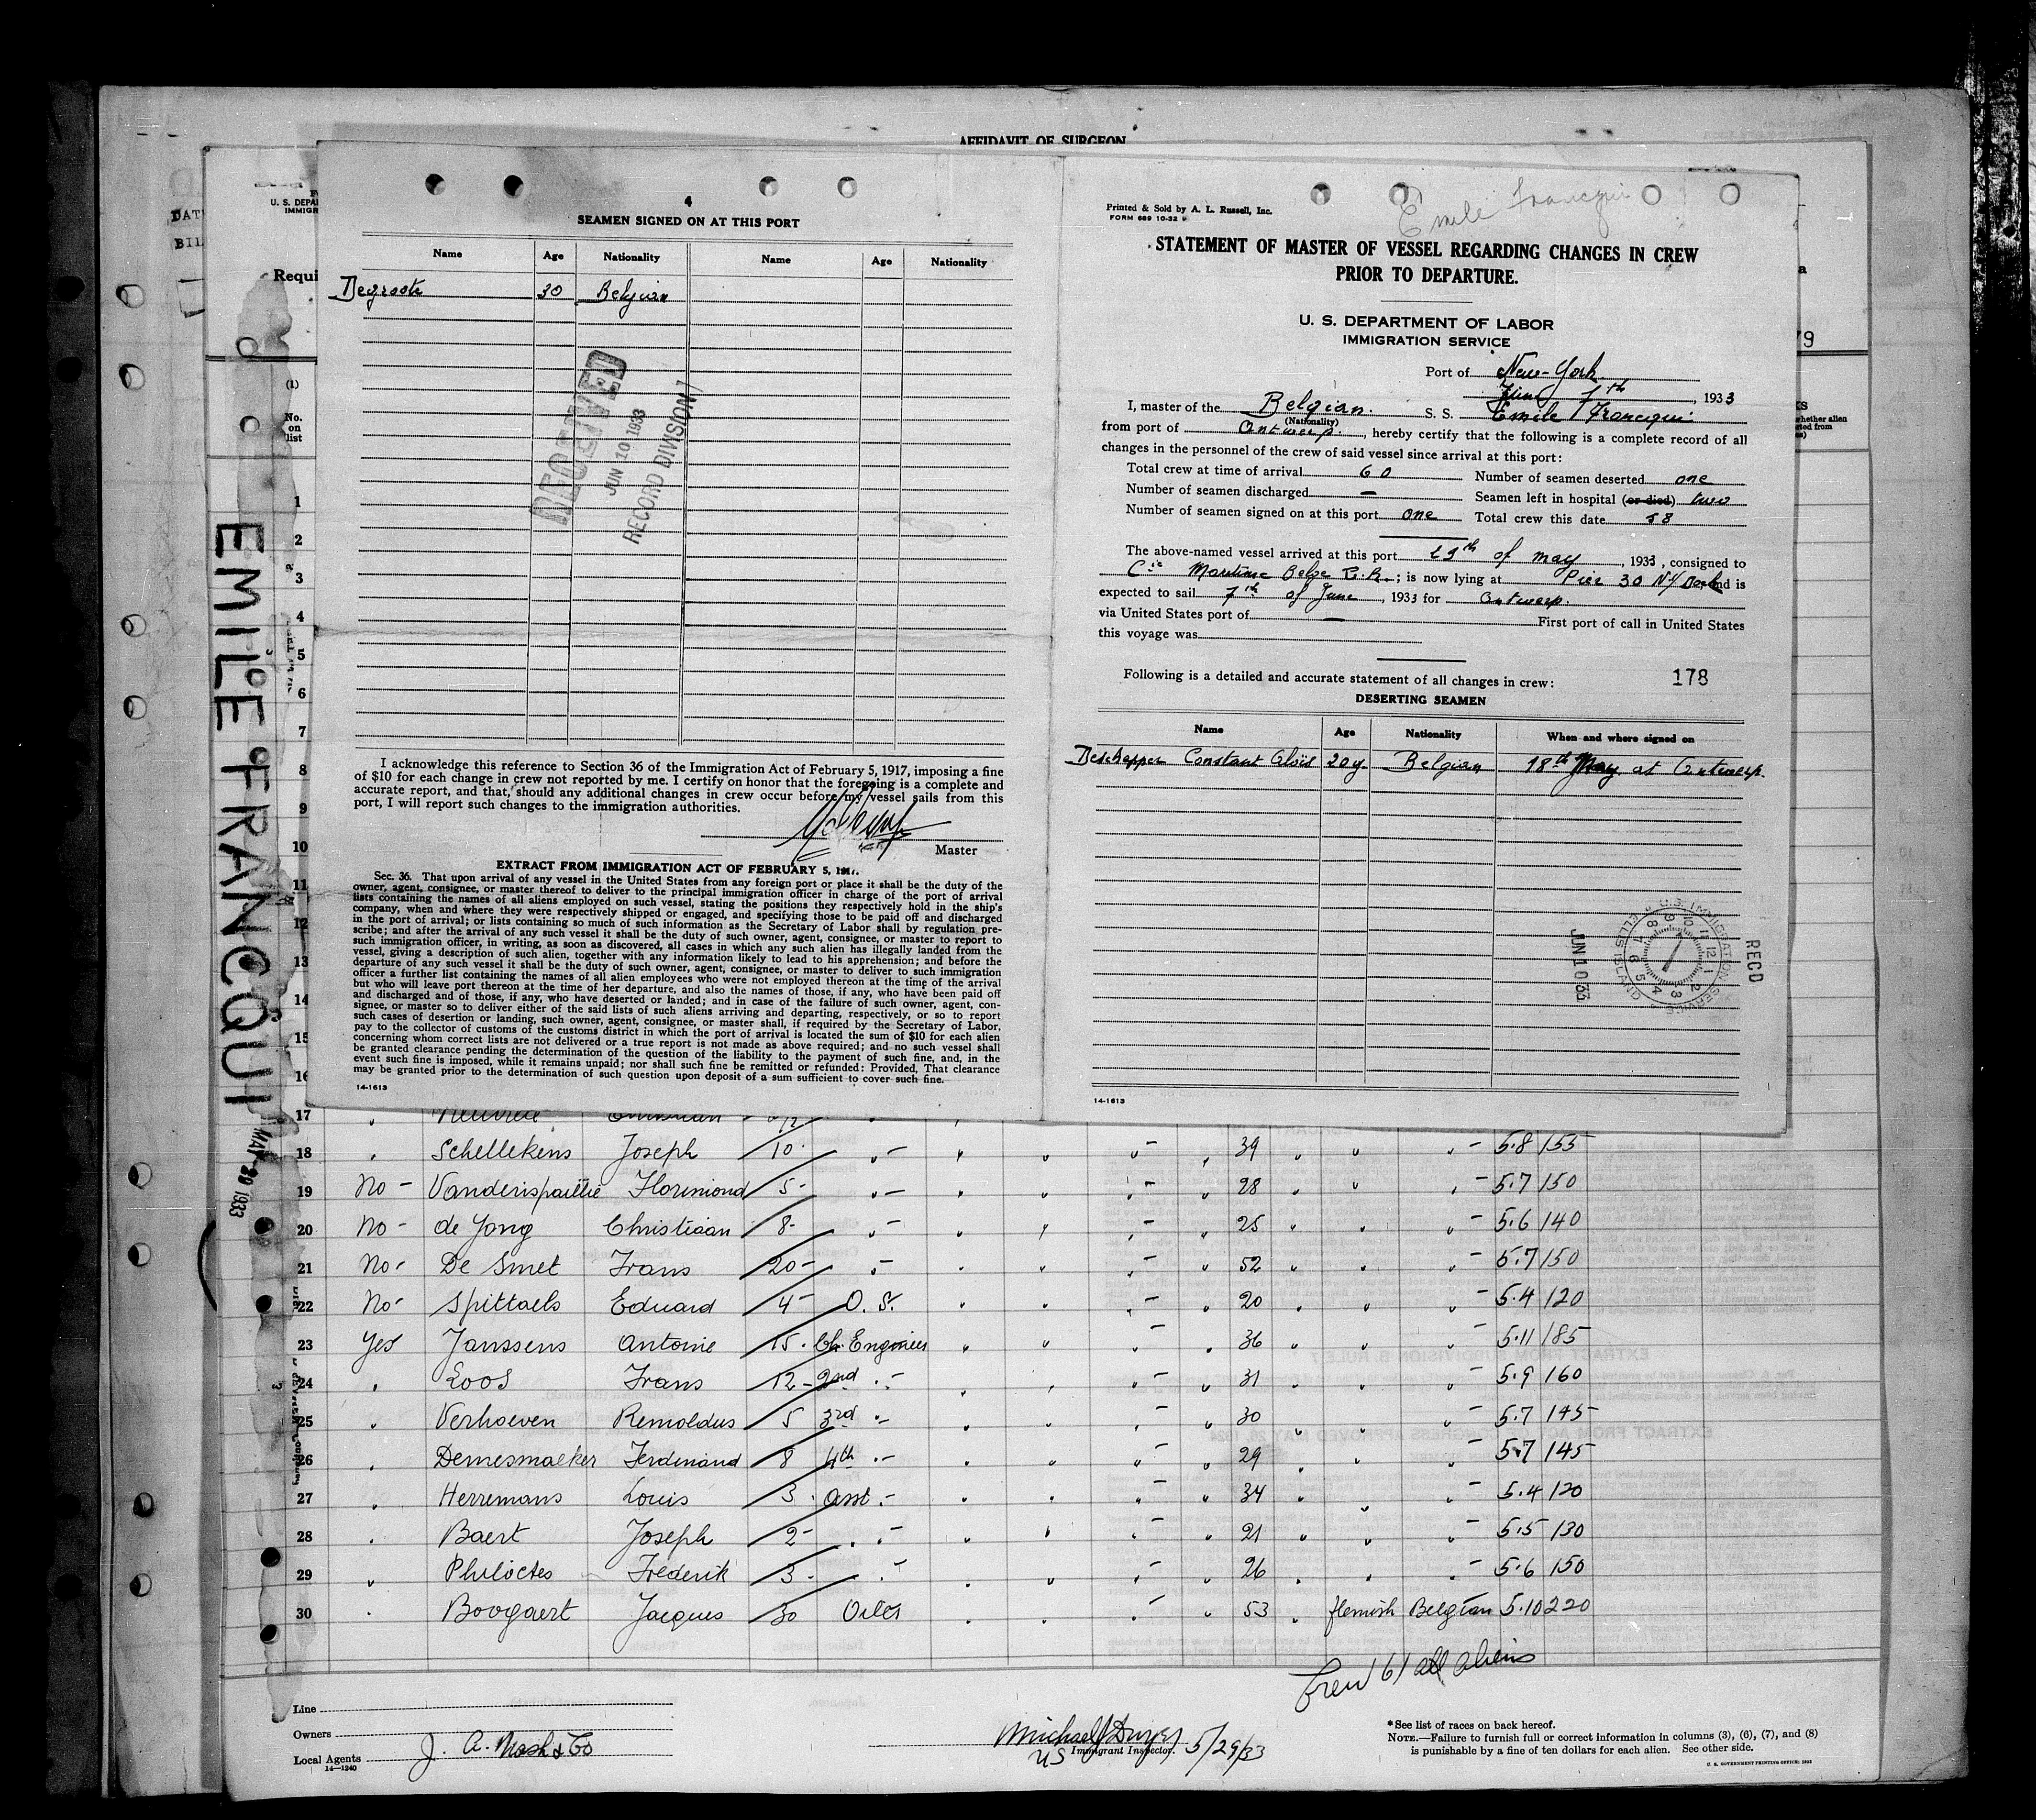 AFFIDAVIT OF SURGEON
4
SEAMEN SIGNED ON AT THIS PORT
Name Age Nationality Name Age Nationality
Degroote 30 Belgian
RECEIVED
JUN 10 1933
RECORD DIVISION
I acknowledge this reference to Section 36 of the Immigration Act of February 5, 1917, imposing a fine
of $10 for each change in crew not reported by me. I certify on honor that the foregoing is a complete and
accurate report, and that, should any additional changes in crew occur before my vessel sails from this
port, I will report such changes to the immigration authorities.
Master
EXTRACT FROM IMMIGRATION ACT OF FEBRUARY 5, 1917.
Sec. 36. That upon arrival of any vessel in the United States from any foreign port or place it shall be the duty of the
owner, agent, consignee, or master thereof to deliver to the principal immigration officer in charge of the port of arrival
lists containing the names of all aliens employed on such vessel, stating the positions they respectively hold in the ship's
company, when and where they were respectively shipped or engaged, and specifying those to be paid off and discharged
in the port of arrival; or lists containing so much of such information as the Secretary of Labor shall by regulation pre-
scribe; and after the arrival of any such vessel it shall be the duty of such owner, agent, consignee, or master to report to
such immigration officer, in writing, as soon as discovered, all cases in which any such alien has illegally landed from the
vessel, giving a description of such alien, together with any information likely to lead to his apprehension; and before the
departure of any such vessel it shall be the duty of such owner, agent, consignee, or master to deliver to such immigration
officer a further list containing the names of all alien employees who were not employed thereon at the time of the arrival
but who will leave port thereon at the time of her departure, and also the names of those, if any, who have been paid off
and discharged and of those, if any, who have deserted or landed; and in case of the failure of such owner, agent, con-
signee, or master so to deliver either of the said lists of such aliens arriving and departing, respectively, or so to report
such cases of desertion or landing, such owner, agent, consignee, or master shall, if required by the Secretary of Labor,
pay to the collector of customs of the customs district in which the port of arrival is located the sum of $10 for each alien
concerning whom correct lists are not delivered or a true report is not made as above required; and no such vessel shall
be granted clearance pending the determination of the question of the liability to the payment of such fine, and, in the
event such fine is imposed, while it remains unpaid; nor shall such fine be remitted or refunded: Provided, That clearance
may be granted prior to the determination of such question upon deposit of a sum sufficient to cover such fine.
14-1613
Emile Francqui
Printed & Sold by A. L. Russell, Inc.
FORM 689 10-32
STATEMENT OF MASTER OF VESSEL REGARDING CHANGES IN CREW
PRIOR TO DEPARTURE.
U. S. DEPARTMENT OF LABOR
IMMIGRATION SERVICE
Port of New-York
June 7th, 1933
I, master of the Belgian. S. S. Emile Francqui
(Nationality)
from port of Antwerp., hereby certify that the following is a complete record of all
changes in the personnel of the crew of said vessel since arrival at this port:
Total crew at time of arrival 60 Number of seamen deserted one
Number of seamen discharged — Seamen left in hospital (or died) two
Number of seamen signed on at this port one Total crew this date 58
The above-named vessel arrived at this port 29th of may, 1933, consigned to
Cie Maritime Belge; is now lying at Pier 30 NY Dock and is
expected to sail 7th of June, 1933 for Antwerp.
via United States port of — First port of call in United States
this voyage was
Following is a detailed and accurate statement of all changes in crew: 178
DESERTING SEAMEN
Name Age Nationality When and where signed on
Deschepper Constant Aloïs 20y. Belgian 18th May at Antwerp.
U.S. IMMIGRATION SERVICE ELLIS ISLAND
REC'D
JUN 10 33
14-1613
U. S. DEPA
IMMIGR
DAT
BIL
Requi
(1)
No.
on
list
EMILE FRANCQUI
MAY 29 1933
1
2
3
4
5
6
7
8
9
10
11
12
13
14
15
16
17
18 " Schellekens Joseph 10 39 5.8 155
19 No - Vanderispaillie Florimond 5 28 5.7 150
20 No - de Jong Christiaan 8 25 5.6 140
21 No - De Smet Frans 20 52 5.7 150
22 No - Spittaels Eduard 4 O.S. 20 5.4 120
23 Yes Janssens Antoine 15 Ch. Engineer 36 5.11 185
24 " Loos Frans 12 2nd 31 5.9 160
25 " Verhoeven Remoldus 5 3rd 30 5.7 145
26 " Demesmaeker Ferdinand 8 4th 29 5.7 145
27 " Herremans Louis 3 Asst. 34 5.4 120
28 " Baert Joseph 2 21 5.5 130
29 " Philoctes Frederik 3 26 5.6 150
30 " Boogaert Jacques 30 Oiler 53 flemish Belgian 5.10 220
Crew 61 all aliens
Line
Owners
Local Agents J. A. Nash & Co
14-1240
Michael J Dwyer 5/29/33
US Immigrant Inspector.
*See list of races on back hereof.
NOTE.—Failure to furnish full or correct information in columns (3), (6), (7), and (8)
is punishable by a fine of ten dollars for each alien. See other side.
U. S. GOVERNMENT PRINTING OFFICE: 1932